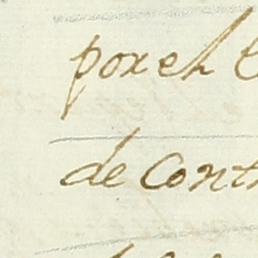 por el
de Cont